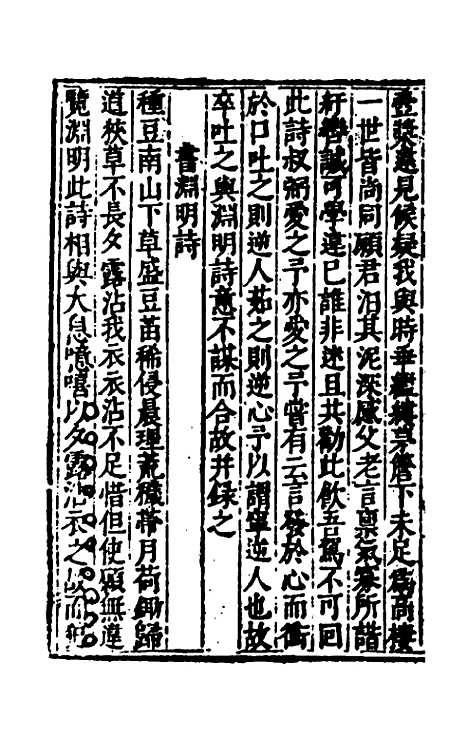 壺漿遠見候疑我與時乖繿縷茅簷下未足爲高棲
一世皆尚同願君汩其泥深感父老言稟氣寡所諧
紆轡誠可學違己詎非迷且共歡此飲吾駕不可回
此詩叔弼愛之予亦愛之予嘗有云言發於心而衝
於口吐之則逆人茹之則逆心予以謂寧逆人也故
卒吐之與淵明詩意不謀而合故并録之
書淵明詩
種豆南山下草盛豆苗稀侵晨理荒穢帶月荷鋤歸
道狹草不長夕露沾我衣衣沾不足惜但使願無違
覽淵明此詩相與太息噫嘻以夕露沾衣之故而